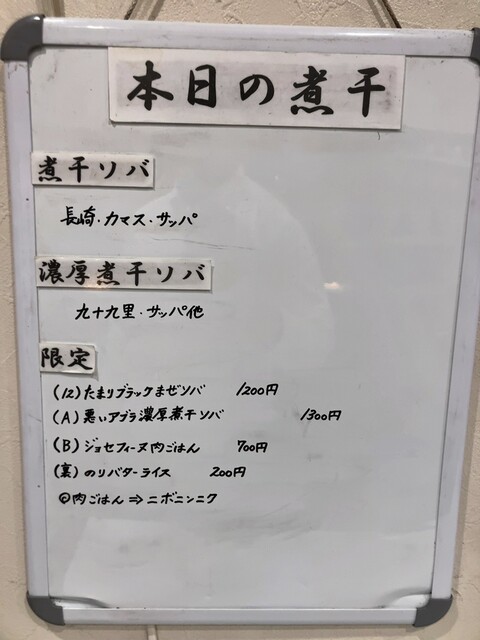 本日の煮干
煮干ソバ
長崎・カマス・サッパ
濃厚煮干ソバ
九十九里・サッパ他
限定
(12)たまりブラックまぜソバ 1200円
(A)悪いアブラ濃厚煮干ソバ 1300円
(B)ジョセフィーヌ肉ごはん 700円
(裏)のりバターライス 200円
◎肉ごはん⇒ニボニンニク